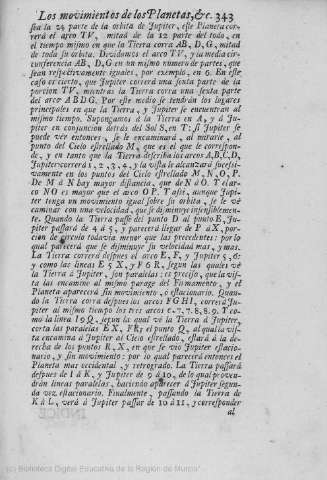 Los movimientos de los Planetas, &c. 343
sea la 24 parte de la orbita de Jupiter, este Planeta cor-
rerá el arco TV, mitad de la 12 parte del todo, en
el tiempo mismo en que la Tierra corra AB, DG, mitad
de toda su orbita. Dividamos el arco TV, y la media cir-
cunferencia AB, DG en un mismo numero de partes, que
sean respectivamente iguales, por exemplo, en 6. En este
caso es cierto, que Jupiter correrá una sexta parte de la
porcion TV, mientras la Tierra corra una sexta parte
del arco ABDG. Por este medio se tendrán los lugares
principales en que la Tierra, y Jupiter se encuentran al
mismo tiempo. Supongamos á la Tierra en A, y á Jupi-
ter en conjuncion detrás del Sol S, en T: si Jupiter se
puede vèr entonces, se le encaminará, al mirarle, al
punto del Cielo estrellado M, que es el que le correspon-
de, y en tanto que la Tierra describa los arcos A, B, C, D,
Jupiter correrá 1, 2, 3, 4, y la vista le alcanzará sucesi-
vamente en los puntos del Cielo estrellado M, N, O, P.
De M á N hay mayor distancia, que de N á O. Y el ar-
co NO es mayor que el arco OP. Y asi, aunque Jupi-
ter tenga un movimiento igual sobre su orbita, se le vé
caminar con una velocidad, que se disminuye insensiblemen-
te. Quando la Tierra passe del punto D al punto E, Ju-
piter passará de 4 á 5, y parecerá llegar de P á X, por-
cion de circulo todavia menor que las precedentes: por lo
qual parecerá que se disminuye su velocidad mas, y mas.
La Tierra correrá despues el arco E, F, y Jupiter 5, 6:
y como las lineas E 5 X, y F 6 R, segun las quales vé
la Tierra á Jupiter, son paralelas: es preciso, que la vis-
ta las encamine al mismo parage del Firmamento, y el
Planeta aparecerá sin movimiento, ò estacionario. Quan-
do la Tierra corra despues los arcos FGHI, correrá Ju-
piter al mismo tiempo los tres arcos 6-7, 7-8, 8-9. Y co-
mo la linea I 9 Q, segun la qual vé la Tierra á Jupiter,
corta las paralelas EX, FR; el punto Q, al qual la vis-
ta encamina á Jupiter al Cielo estrellado, estará á la de-
recha de los puntos R, X, en que se vió Jupiter estacio-
nario, y sin movimiento: por lo qual parecerá entonces el
Planeta mas occidental, y retrogrado. La Tierra passará
despues de I á K, y Jupiter de 9 á 10, de lo qual proven-
drán lineas paralelas, haciendo aparecer á Jupiter segun-
da vez estacionario. Finalmente, passando la Tierra de
K á L, verá á Jupiter passar de 10 á 11, y corresponder
al
(c) Biblioteca Digital Educativa de la Región de Murcia